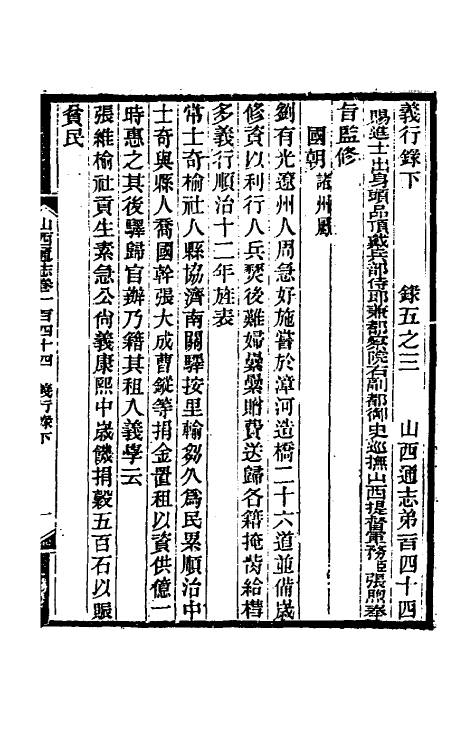 義行錄下　錄五之三　山西通志弟百四十四
賜進士出身頭品頂戴兵部侍郎兼都察院右副都御史巡撫山西提督軍務臣張煦奉
旨監修
國朝諸州廳
劉有光遼州人周急好施嘗於漳河造橋二十六道並備歲
修資以利行人兵燹後難婦纍纍贈費送歸各籍掩胔給槥
多義行順治十二年旌表
常士奇榆社人縣協濟南關驛按里輸芻久爲民累順治中
士奇與縣人喬國幹張大成曹鏦等捐金置租以資供億一
時惠之其後驛歸官辦乃籍其租入義學云
張維榆社貢生素急公尙義康熙中歲饑捐穀五百石以賑
貧民
山西通志卷一百四十四　義行錄下　一